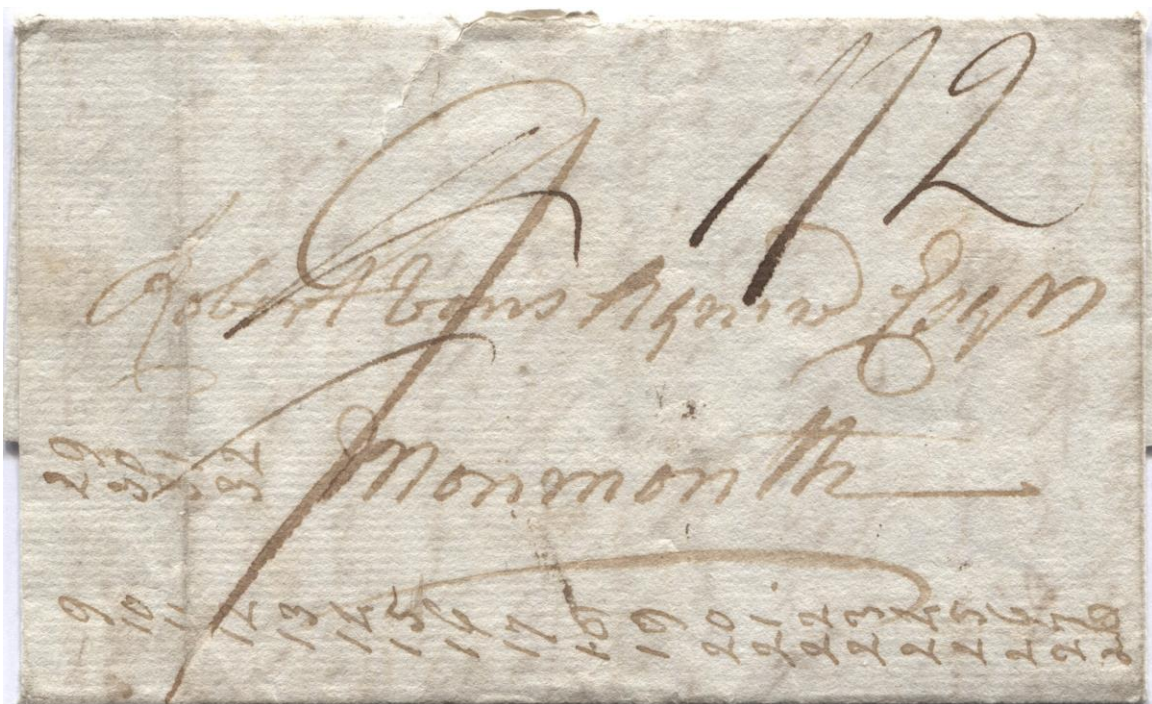 1/2
Robert Vans Agnew Esqr
Monmouth
29
30
31
32
9
10
11
12
13
14
15
16
17
18
19
20
21
22
23
24
25
26
27
28